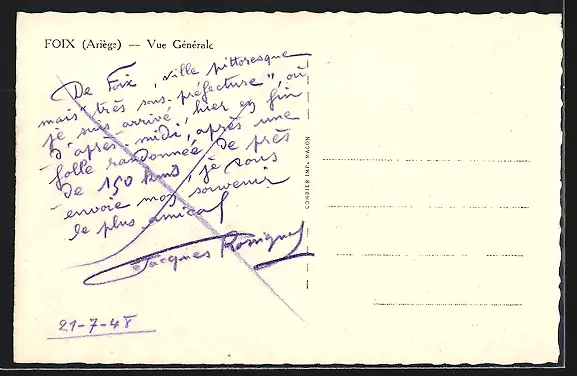 FOIX (Ariège) — Vue Générale
De Foix, "ville pittoresque
mais "très sous-préfecture", où
je suis arrivé, hier en fin
d'après-midi, après une
folle randonnée de près
de 150 kms, je vous
envoie mon souvenir
le plus amical
Jacques
COMBIER IMP. MACON
21-7-48